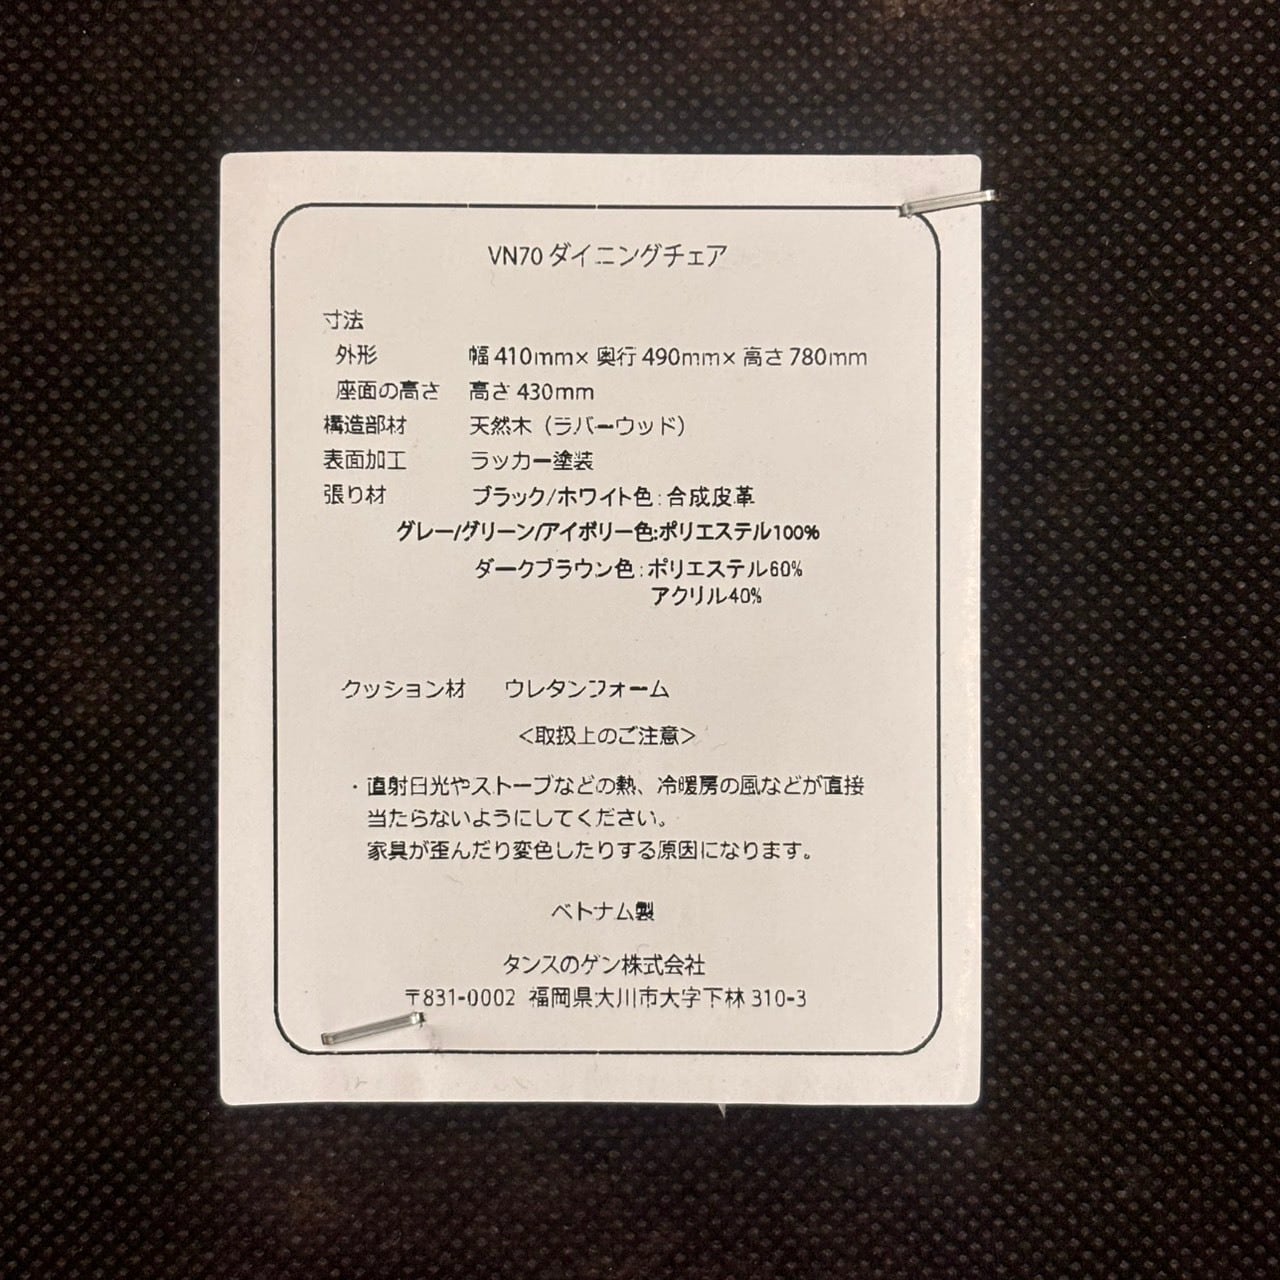 VN70 ダイニングチェア
寸法
外形 幅 410mm× 奥行 490mm× 高さ 780mm
座面の高さ 高さ 430mm
構造部材 天然木（ラバーウッド）
表面加工 ラッカー塗装
張り材 ブラック/ホワイト色：合成皮革
グレー/グリーン/アイボリー色:ポリエステル100%
ダークブラウン色：ポリエステル60%
アクリル40%
クッション材 ウレタンフォーム
＜取扱上のご注意＞
・直射日光やストーブなどの熱、冷暖房の風などが直接
当たらないようにしてください。
家具が歪んだり変色したりする原因になります。
ベトナム製
タンスのゲン株式会社
〒831-0002 福岡県大川市大字下林 310-3